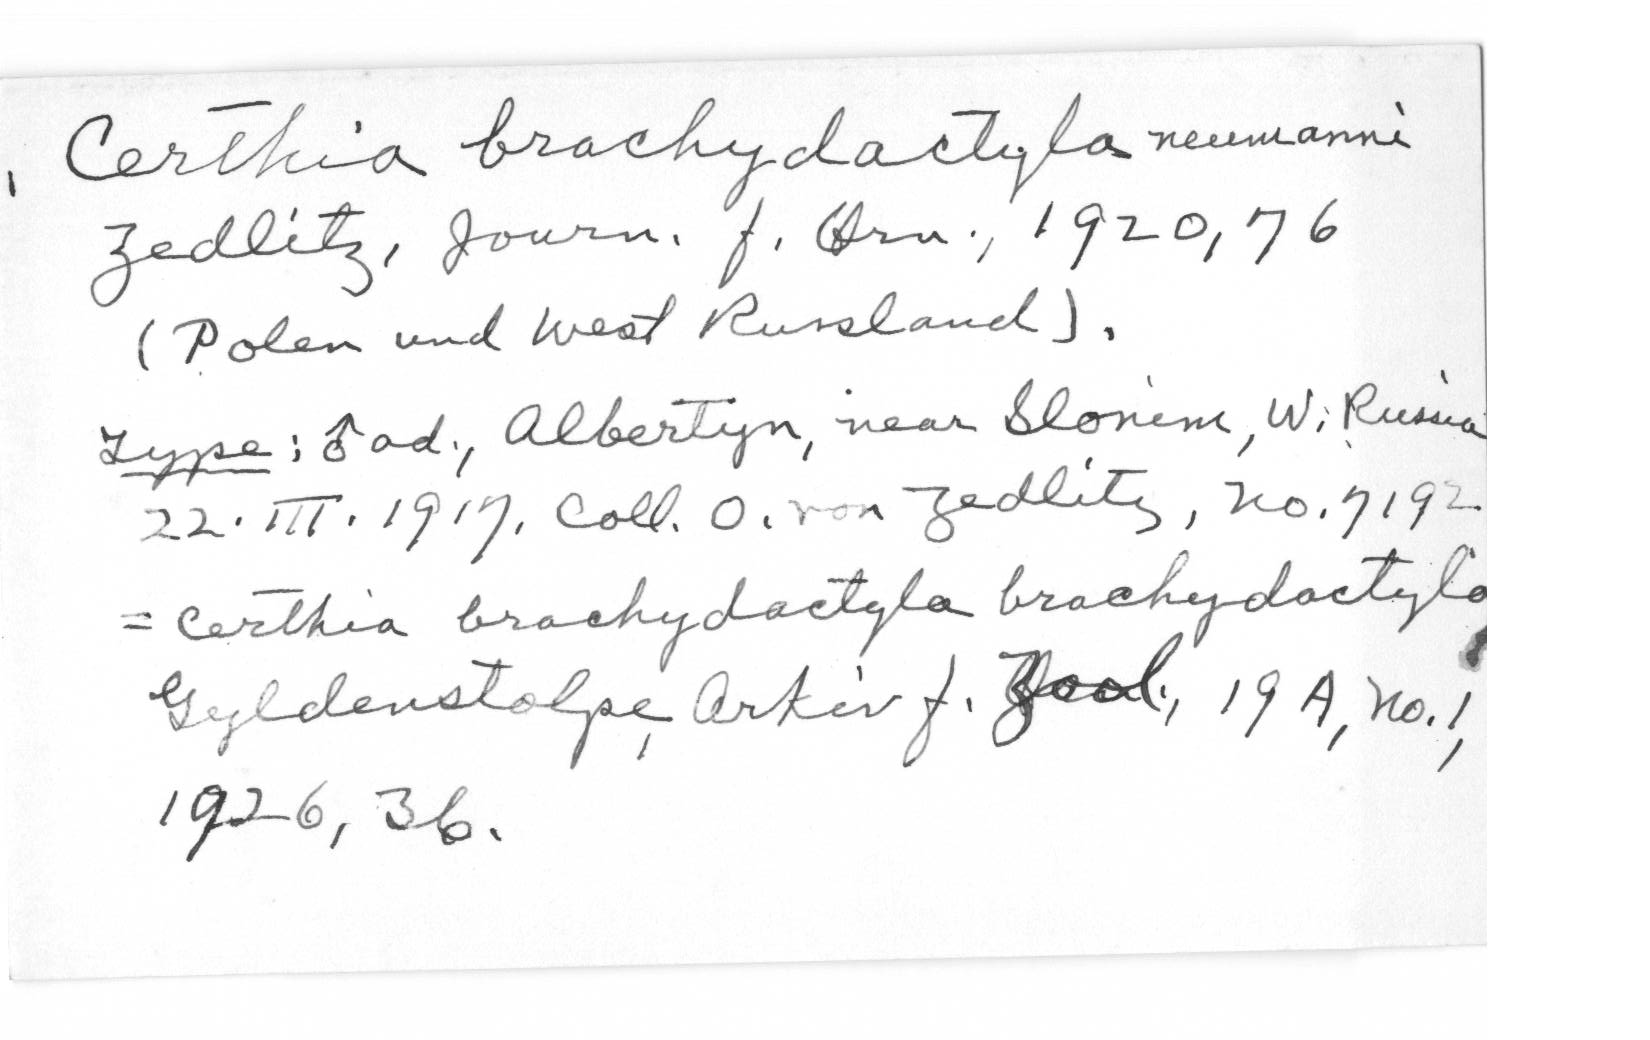 Certhia brachydactyla neumanni
Zedlitz, Journ. f. Orn., 1920, 76
(Polen und West Russland).
Type: ♂ ad., Albertyn, near Slonim, W. Russia
22. III. 1917. Coll. O. von Zedlitz, no. 7192
= Certhia brachydactyla brachydactyla
Gyldenstolpe, Arkiv f. Zool., 19 A, no. 1,
1926, 36.